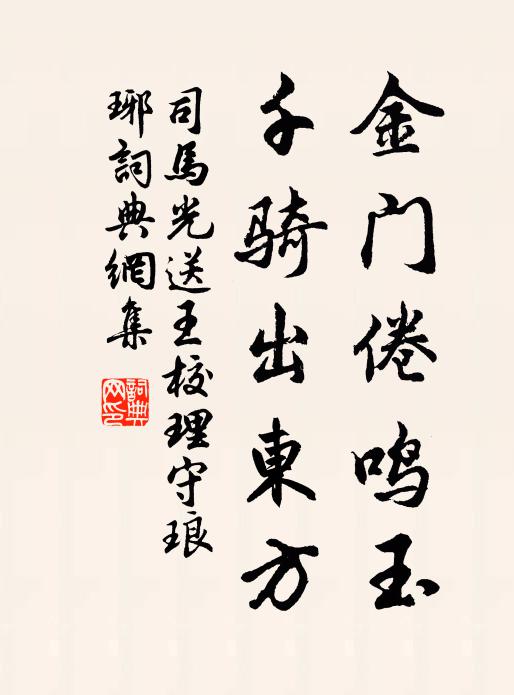 金门倦鸣玉
千骑出東方
司馬光送王校理守琅
琊詞典網集
詞典网印